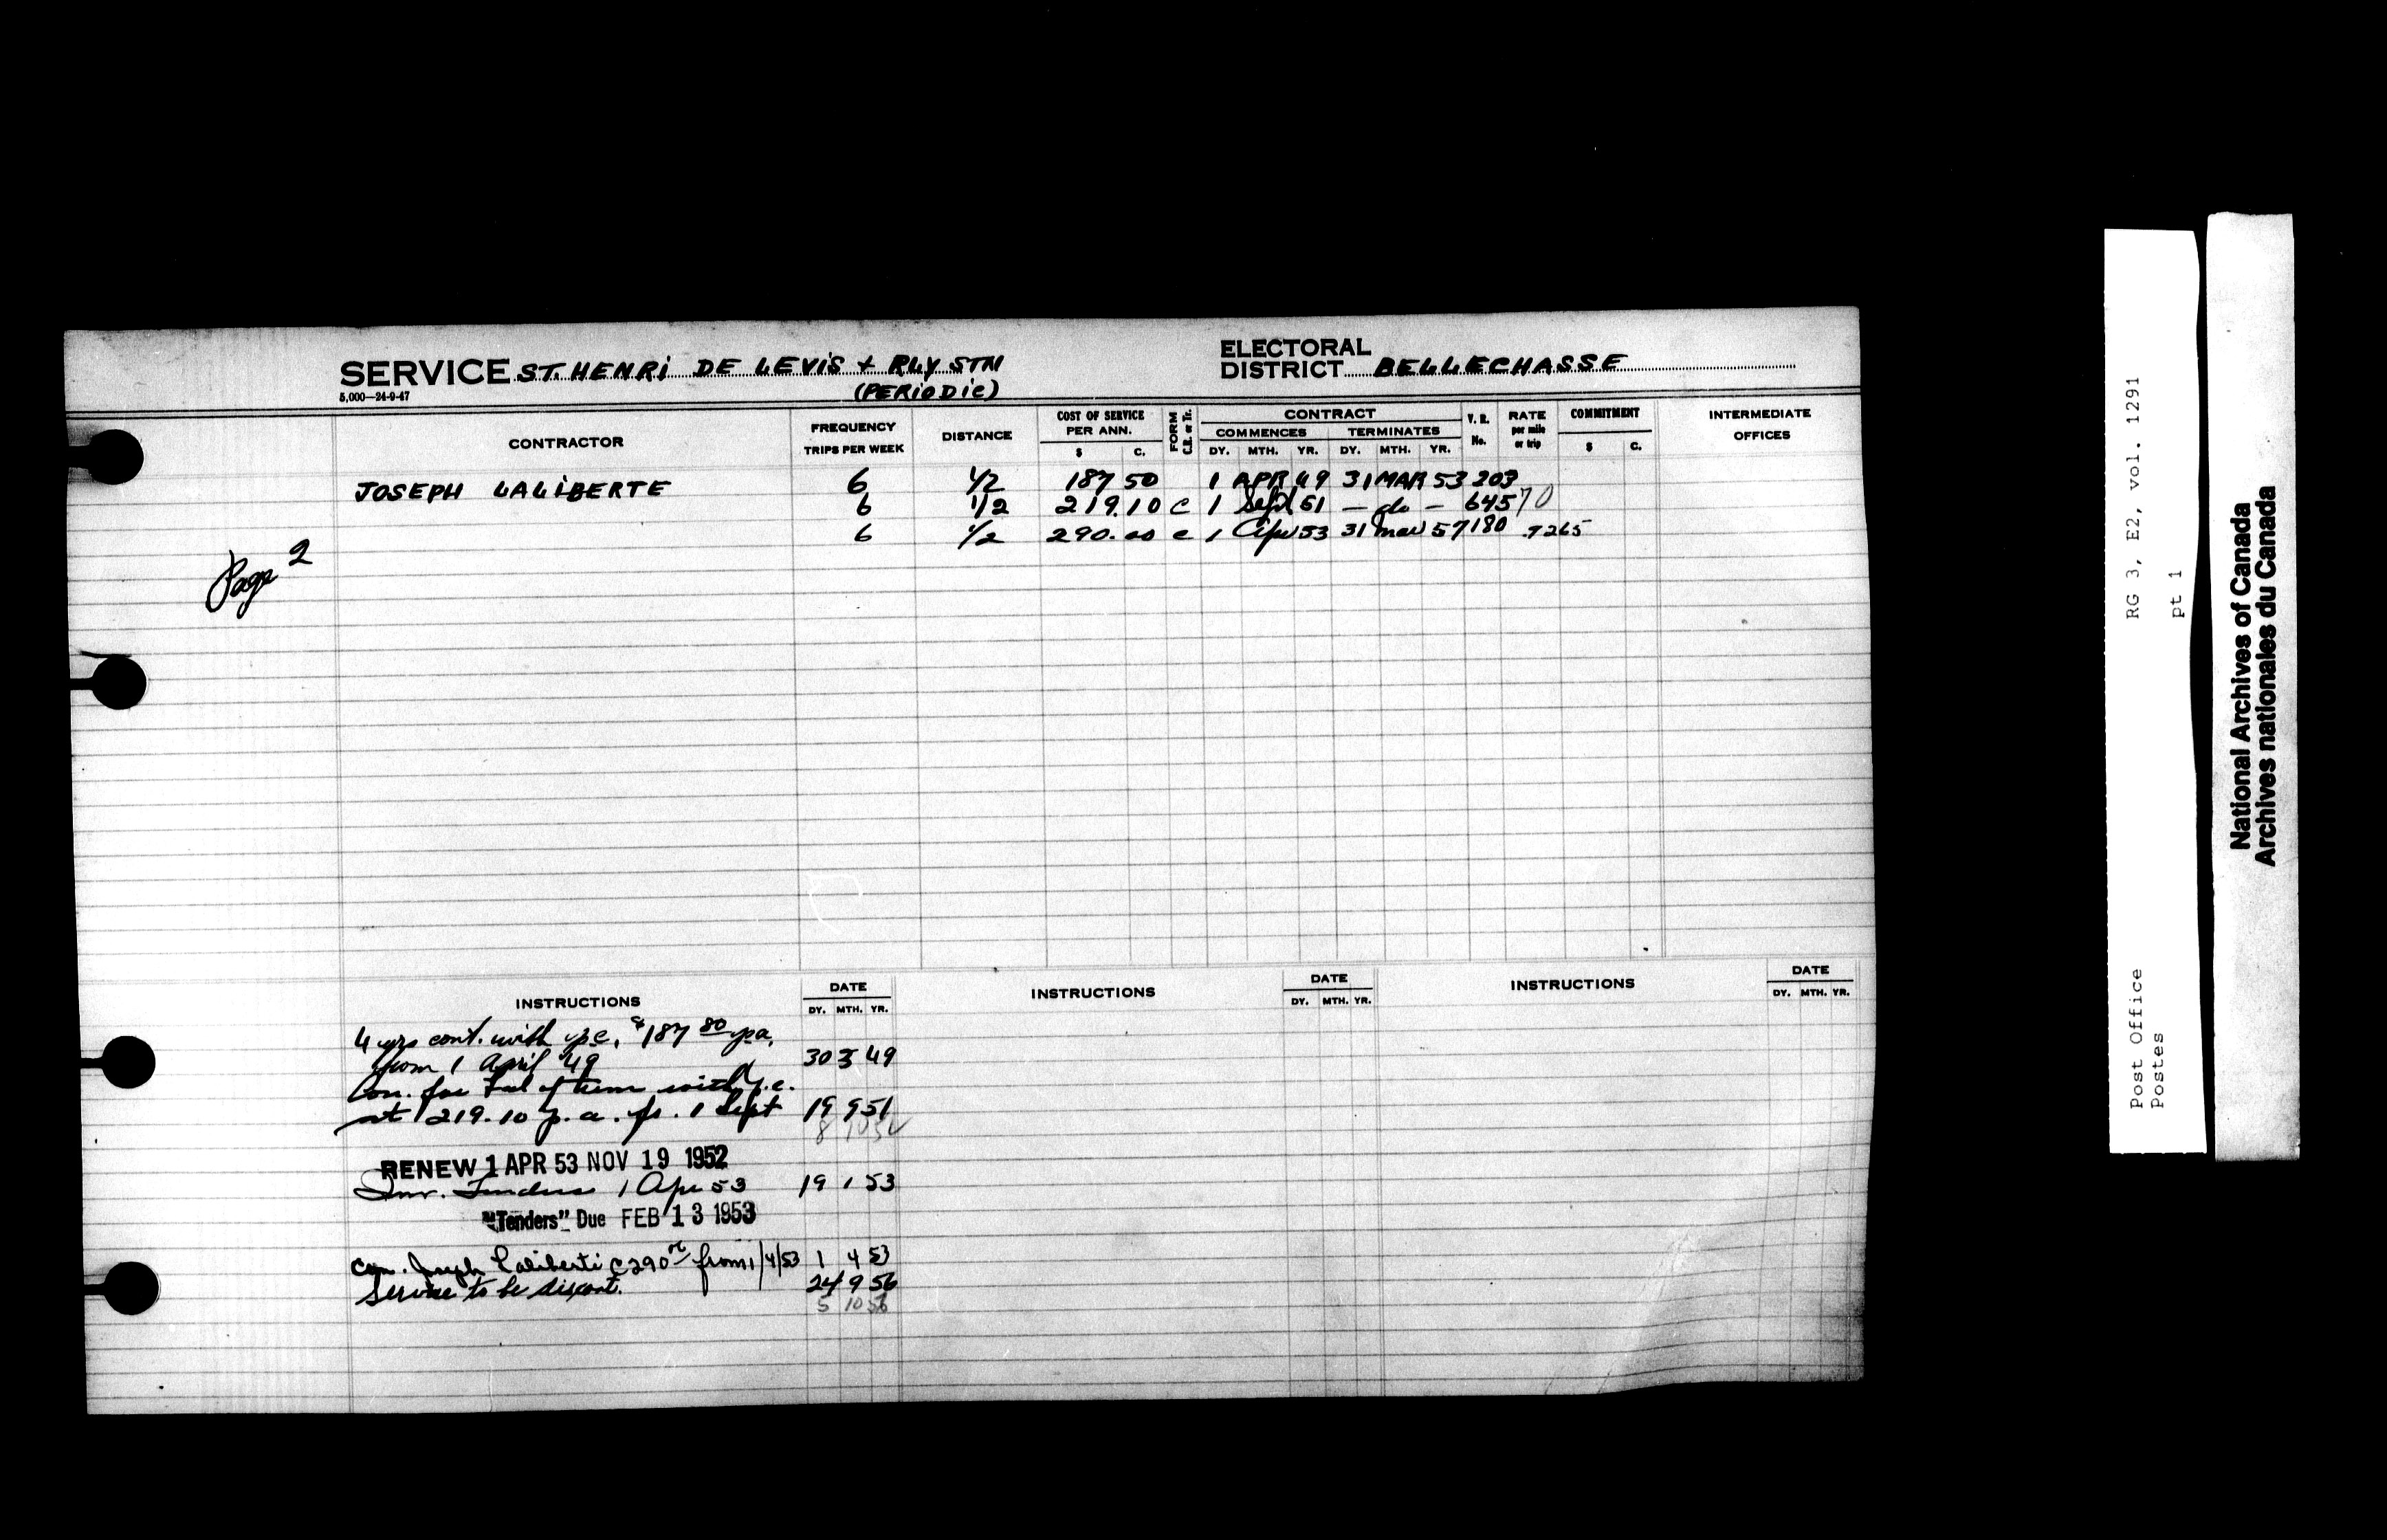 SERVICE ST. HENRI DE LEVIS + RLY STN
(PERIODIC)
5,000—24-9-47
ELECTORAL
DISTRICT BELLECHASSE
CONTRACTOR
FREQUENCY
TRIPS PER WEEK
DISTANCE
COST OF SERVICE
PER ANN.
$ C.
FORM
C.B. or Tr.
CONTRACT
COMMENCES TERMINATES
DY. MTH. YR. DY. MTH. YR.
V. R.
No.
RATE
per mile
or trip
COMMITMENT
$ C.
INTERMEDIATE
OFFICES
JOSEPH LALIBERTE 6 1/2 187 50 1 APR 49 31 MAR 53 203
6 1/2 219.10 C 1 Sept 51 — do — 645 70
6 1/2 290.00 C 1 Apr 53 31 mar 57 180 .7265
Page 2
INSTRUCTIONS
DATE
DY. MTH. YR.
INSTRUCTIONS
DATE
DY. MTH. YR.
INSTRUCTIONS
DATE
DY. MTH. YR.
4 yrs cont. with p.c. $187 80 p.a.
from 1 April '49 30 3 49
Con. for bal of term with p.c.
at 219.10 p.a. fr. 1 Sept 19 9 51
RENEW 1 APR 53 NOV 19 1952
Inv. Tenders 1 Apr 53 19 1 53
"Tenders" Due FEB 13 1953
Con. Joseph Laliberti C 290 from 1/4/53 1 4 53
Service to be discont. 24 9 56
5 10 56
RG 3, E2, vol. 1291
pt 1
Post Office
Postes
National Archives of Canada
Archives nationales du Canada